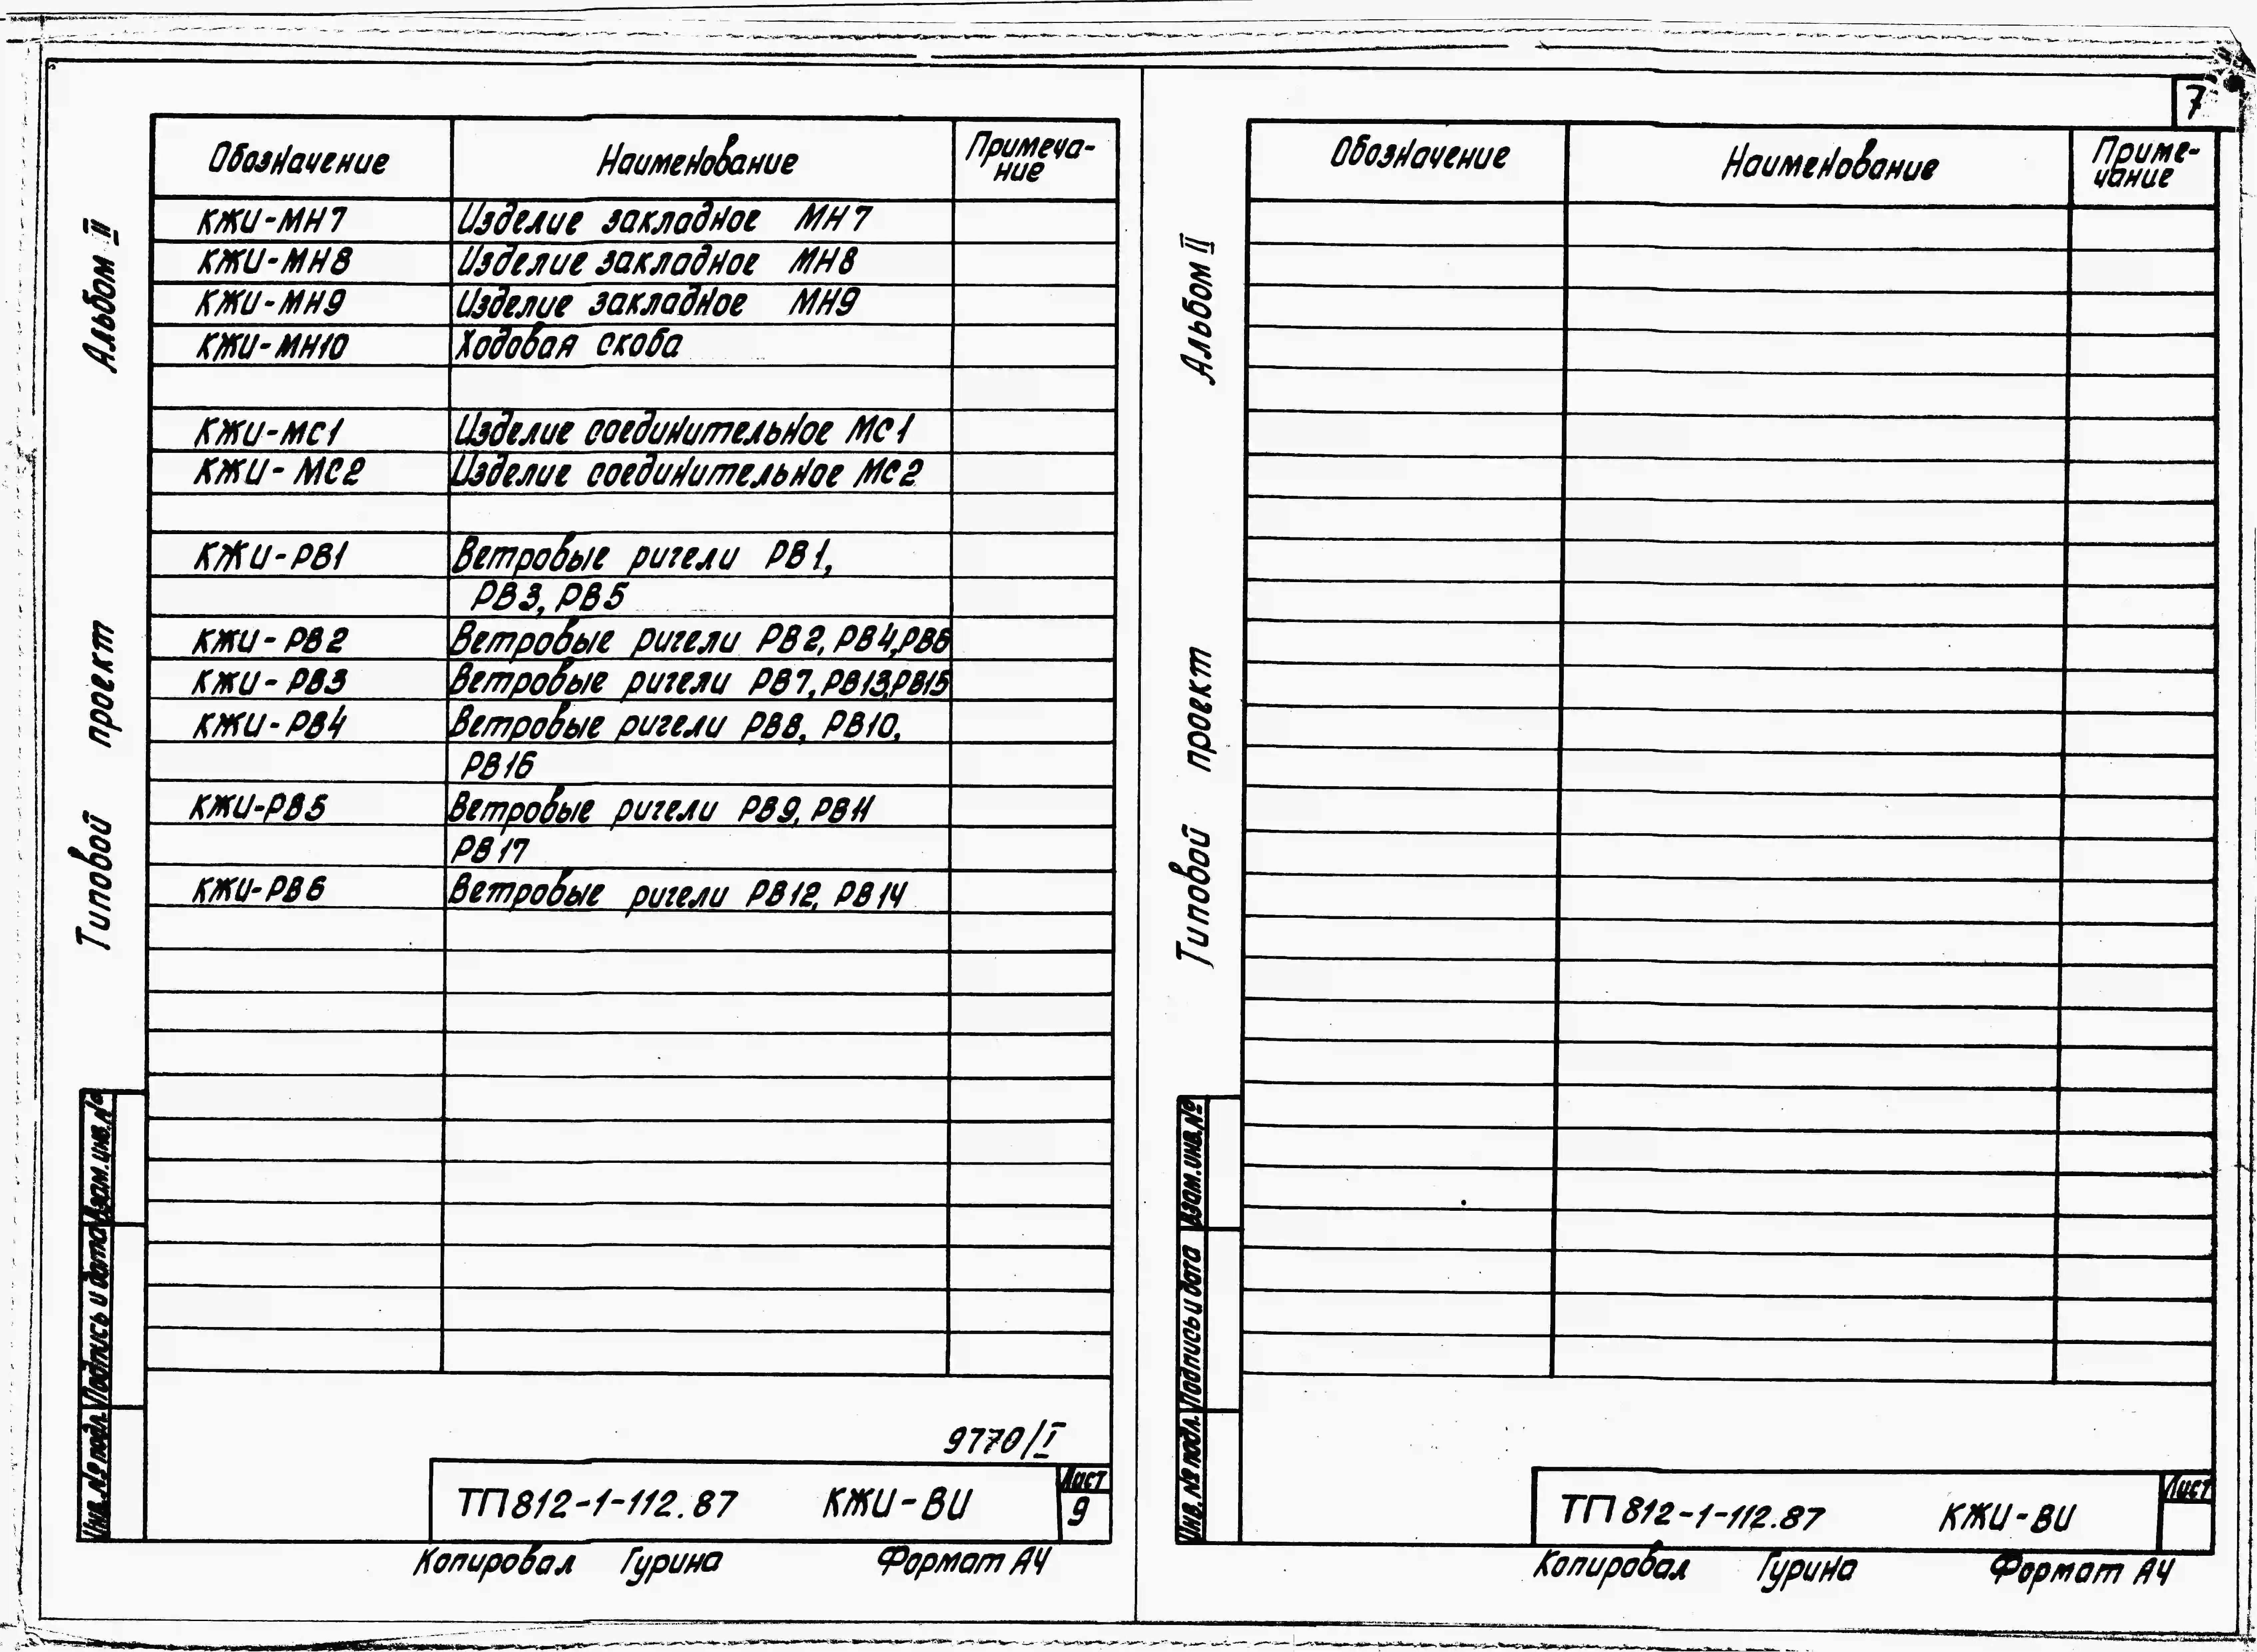 7
Альбом II
Типовой проект
Обозначение Наименование Примеча-
ние
КЖИ-МН7 Изделие закладное МН7
КЖИ-МН8 Изделие закладное МН8
КЖИ-МН9 Изделие закладное МН9
КЖИ-МН10 Ходовая скоба
КЖИ-МС1 Изделие соединительное МС1
КЖИ-МС2 Изделие соединительное МС2
КЖИ-РВ1 Ветровые ригели РВ1,
РВ3, РВ5
КЖИ-РВ2 Ветровые ригели РВ2, РВ4, РВ6
КЖИ-РВ3 Ветровые ригели РВ7, РВ13, РВ15
КЖИ-РВ4 Ветровые ригели РВ8, РВ10,
РВ16
КЖИ-РВ5 Ветровые ригели РВ9, РВ11
РВ17
КЖИ-РВ6 Ветровые ригели РВ12, РВ14
Инв. № подл. Подпись и дата Взам. инв. №
9770/I
ТП 812-1-112.87 КЖИ-ВИ
Лист
9
Копировал Гурина Формат А4
Альбом II
Типовой проект
Обозначение Наименование Приме-
чание
Инв. № подл. Подпись и дата Взам. инв. №
ТП 812-1-112.87 КЖИ-ВИ
Лист
Копировал Гурина Формат А4